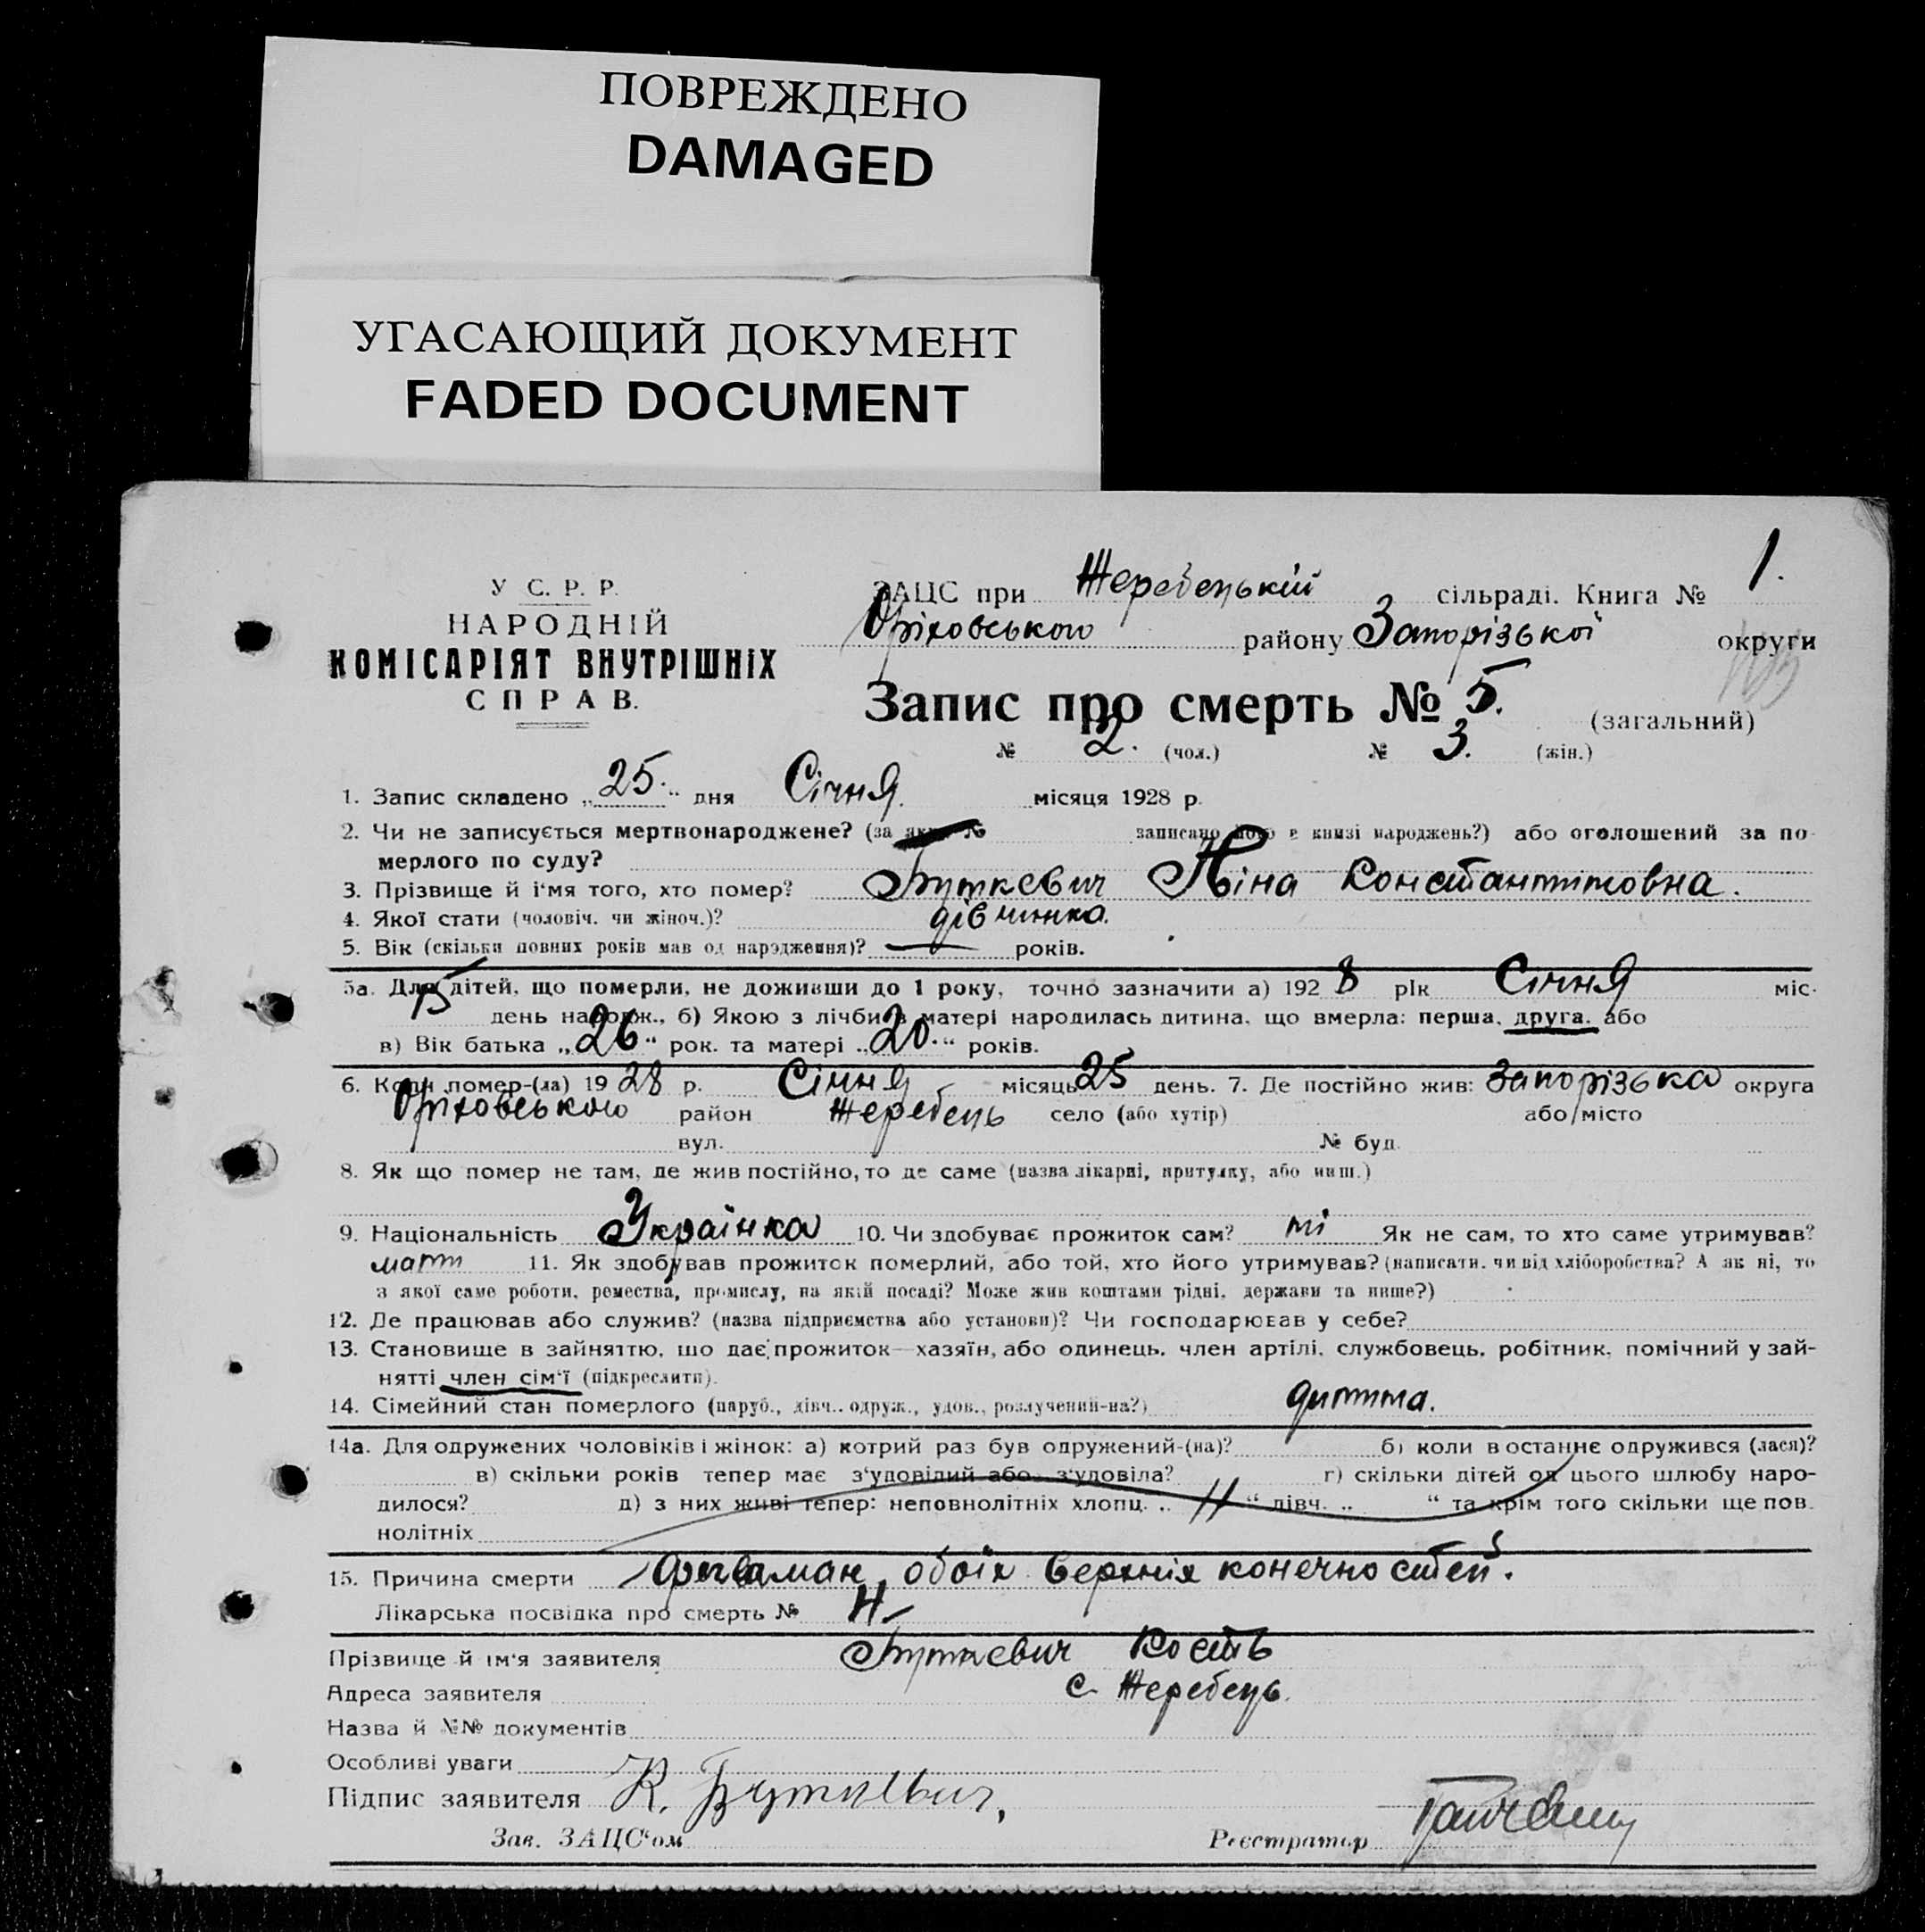 ПОВРЕЖДЕНО
DAMAGED
УГАСАЮЩИЙ ДОКУМЕНТ
FADED DOCUMENT
У С. Р. Р.
НАРОДНІЙ
КОМІСАРІЯТ ВНУТРІШНІХ
СПРАВ.
ЗАЦС при Жеребецькій сільраді. Книга № 1.
Оріховського району Запорізької округи
Запис про смерть № 5. (загальний)
№ 2. (чол.) № 3. (жін.)
1. Запис складено „25." дня Січня місяця 1928 р.
2. Чи не записується мертвонароджене? (за яким № записано його в книзі народжень?) або оголошений за по-
мерлого по суду?
3. Прізвище й ім'я того, хто помер? Буткевич Ніна Константиновна.
4. Якої стати (чоловіч. чи жіноч.)? дівчинка.
5. Вік (скільки повних років мав од народження)? — років.
5а. Для дітей, що померли, не доживши до 1 року, точно зазначити а) 1928 рік Січня міс.
15 день народж., б) Якою з лічби в матері народилась дитина, що вмерла: перша, друга, або
в) Вік батька „26" рок. та матері „20." років.
6. Коли помер-(ла) 1928 р. Січня місяць 25 день. 7. Де постійно жив: Запорізька округа
Оріховського район Жеребець село (або хутір) або місто
вул. № буд.
8. Як що помер не там, де жив постійно, то де саме (назва лікарні, притулку, або инш.)
9. Національність Українка 10. Чи здобуває прожиток сам? ні Як не сам, то хто саме утримував?
мати 11. Як здобував прожиток померлий, або той, хто його утримував? (написати, чи від хліборобства? А як ні, то
з якої саме роботи, ремества, промислу, на якій посаді? Може жив коштами рідні, держави та инше?)
12. Де працював або служив? (назва підприємства або установи)? Чи господарював у себе?
13. Становище в зайняттю, що дає прожиток—хазяїн, або одинець, член артілі, службовець, робітник, помічний у зай-
нятті член сім'ї (підкреслити).
14. Сімейний стан померлого (паруб., дівч., одруж., удов., розлучений-на?) дитина.
14а. Для одружених чоловіків і жінок: а) котрий раз був одружений-(на)? б) коли в останнє одружився (лася)?
в) скільки років тепер має з'удовілий або з'удовіла? г) скільки дітей од цього шлюбу наро-
дилося? д) з них живі тепер: неповнолітніх хлопц. „ " дівч. „ " та крім того скільки ще пов-
нолітніх
15. Причина смерти обоїх верхніх конечностей.
Лікарська посвідка про смерть №
Прізвище й ім'я заявителя Буткевич Кость
Адреса заявителя с. Жеребець.
Назва й №№ документів
Особливі уваги
Підпис заявителя К. Буткевич,
Зав. ЗАЦС'ом Реєстратор